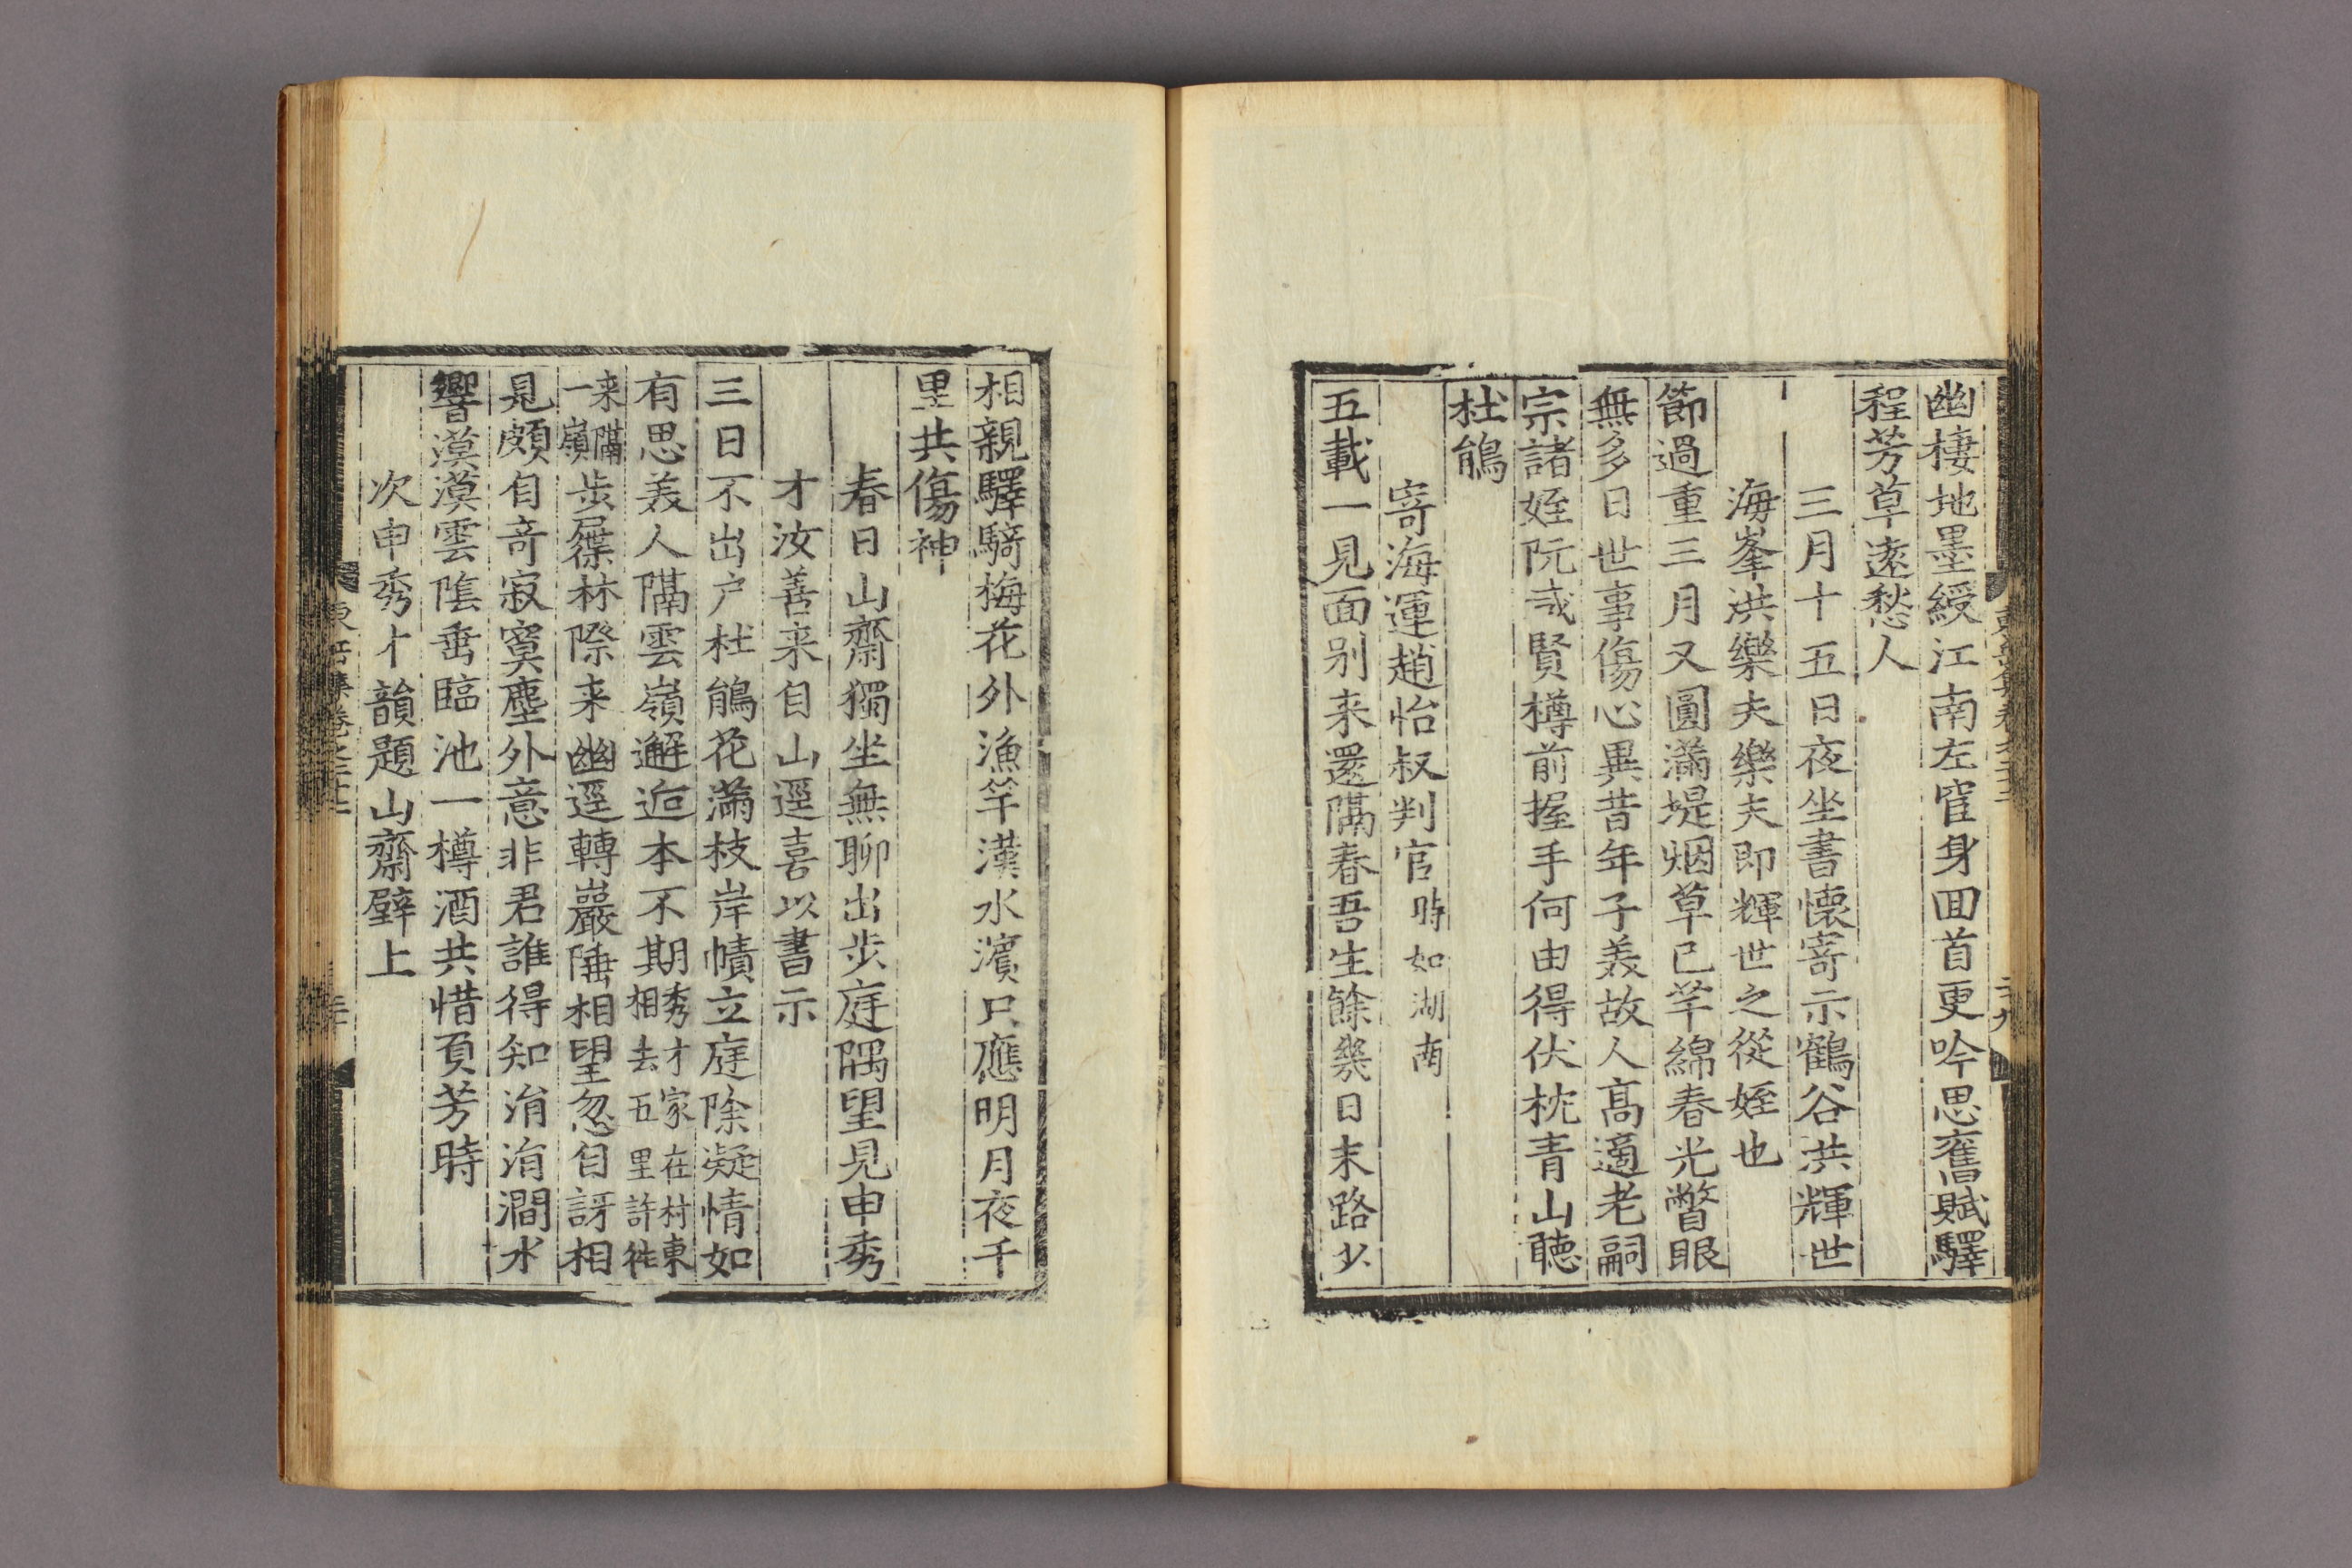 幽棲地墨綬江南左宦身回首更吟思舊賦驛
程芳草遠愁人
三月十五日夜坐書懷寄示鶴谷洪輝世
海峯洪樂夫樂夫即輝世之從姪也
節過重三月又圓滿堤烟草已芊綿春光瞥眼
無多日世事傷心異昔年子美故人高適老嗣
宗諸姪阮咸賢樽前握手何由得伏枕青山聽
杜鵑
寄海運趙怡叔判官時如湖南
五載一見面別来還隔春吾生餘幾日末路少
相親驛騎梅花外漁竿漢水濱只應明月夜千
里共傷神
春日山齋獨坐無聊出步庭隅望見申秀
才汝善来自山逕喜以書示
三日不出户杜鵑花滿枝岸幘立庭除凝情如
有思美人隔雲嶺邂逅本不期秀才家在村東相去五里許徃
来隔一嶺步屧林際来幽逕轉巖陲相望忽自訝相
見頗自奇寂寞塵外意非君誰得知涓涓澗水
響漠漠雲陰垂臨池一樽酒共惜頁芳時
次申秀才韻題山齋壁上